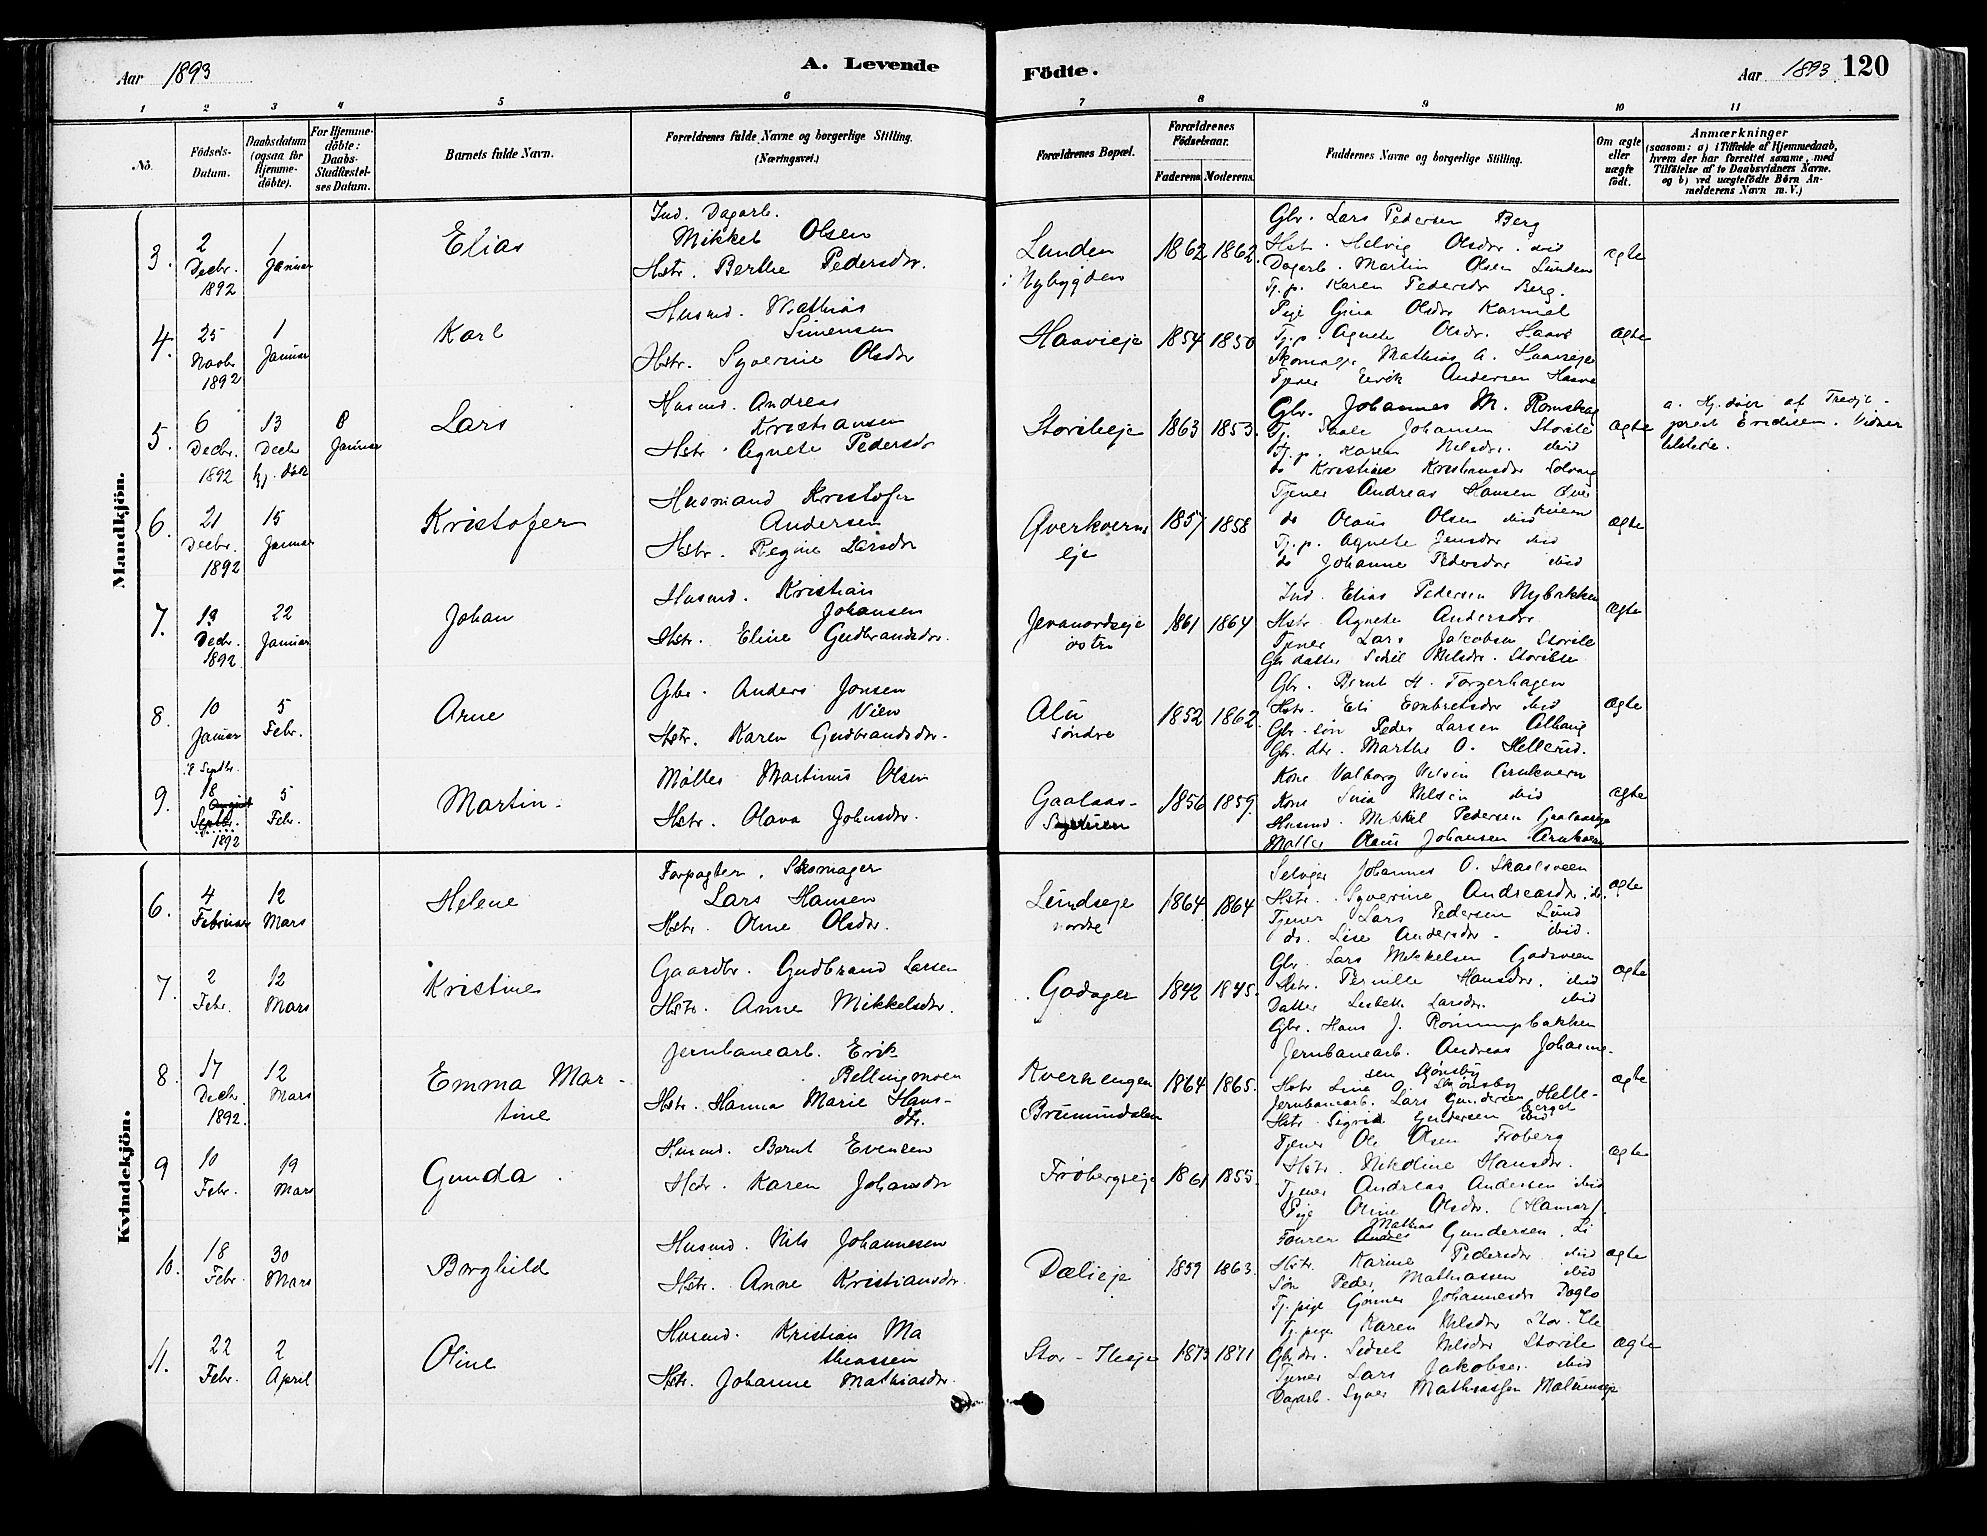 Aar 1893
A. Levende
Födte.
Aar 1893.
120
1 2 3 4 5 6 7 8 9 10 11
No.
Födsels-
Datum.
Daabsdatum
(ogsaa for
Hjemme-
döbte).
For Hjemme-
döbte:
Daabs-
Stadfæstel-
ses Datum.
Barnets fulde Navn.
Forældrenes fulde Navne og borgerlige Stilling.
(Næringsvei.)
Forældrenes Bopæl.
Forældrenes
Födselsaar.
Faderens. Moderens.
Faddernes Navne og borgerlige Stilling.
Om ægte
eller
uægte
födt.
Anmærkninger
(saasom: a) i Tilfælde af Hjemmedaab,
hvem der har forrettet samme, med
Tilföielse af to Daabsvidners Navne.
og b) ved uægtefödte Börn An-
melderens Navn m. V.)
Mandkjön.
3.
2
Decbr.
1892
1
Januar
Elias
Ind. Dagarb.
Mikkel Olsen
Hstr. Berthe Pedersdr.
Lunden
i Nybygden
1862 1862.
Gbr. Lars Pedersen Berg
Hstr. Helvig Olsdr. ibid
Dagarb. Martin Olsen Lunden
Tj. p. Karen Pedersdr Berg.
ægte
4.
25
Novbr.
1892
1
Januar
Karl
Husmd. Mathias
Simensen
Hstr. Syverine Olsdr
Haavieje
1854 1850
Pige Gina Olsdr Karmel
Tj. p. Agnete Olsdr. Haave
Skomag. Mathias A. Haavieje
Tjener Erik Andersen Haave
ægte
5.
6
Decbr.
1892
13
Decbr
hj. døbt
8
Januar
Lars
Husmd. Andreas
Kristiansen
Hstr. Agnete Pedersdr
Storihleje
1863 1853.
Gbr. Johannes M. Romskag
Tj. Paale Johansen Storile
Tj. p. Karen Nilsdr. ibid
do Kristine Kristiansdr Solvang
ægte
a. Hj. døbt af Tredje-
prest Eriksen. Vidner
tilstede.
6.
21
Decbr.
1892
15
Januar
Kristofer
Husmand Kristofer
Andersen
Hstr. Regine Larsdr
Øverkverns
eje
1857 1858
Tjener Andreas Hansen Øver
kvern
do Olaus Olsen ibid
Tj. p. Agnete Jensdr ibid
do Johanne Pedersdr ibid
ægte
7.
19
Decbr.
1892
22
Januar
Johan
Husmd. Kristian
Johansen
Hstr. Eline Gudbrandsdr.
Jevanordseje
østre
1861 1864
Ind. Elias Pedersen Nybakken
Hstr. Agnete Andersdr
Tjener Lars Jakobsen Storile
Gbr datter Sidsel Nilsdr. Storihle
ægte
8.
10
Januar
5
Febr.
Arne
Gbr. Anders Jonsen
Vien
Hstr. Karen Gudbrandsdr.
Alu
søndre
1852 1862.
Gbr. Bernt H. Torgerhagen
Hstr. Eli Embretsdr ibid
Gbr. søn Peder Larsen Alhaug
Gbr. dtr. Marthe O. Hellerud.
ægte
9.
18 Septbr.
18
August
Septbr.
1892
5
Febr.
Martin.
Møller Martinus Olsen
Hstr. Olava Johnsdr.
Gaalaas-
1856 1859.
Kone Valborg Nilsen Arnkvern
Kone Sina Nilsen ibid
Husmd. Mikkel Pedersen Gaalaaseje
Møller Olaus Johansen Arnkvern
ægte
Kvindekjön.
6.
4
Februar
12
Mars
Helene
Forpagter. Skomager
Lars Hansen
Hstr. Oline Olsdr.
Lundseje
nordre
1864 1864
Selveier Johannes O. Skaslsveen
Hstr. Syverine Andreasdr. ib.
Tjener Lars Pedersen Lund
do. Lise Andersdr. ibid.
ægte
7.
2
Febr.
12
Mars
Kristine
Gaardbr. Gudbrand Larsen
Hstr. Anne Mikkelsdr.
Godager
1842 1845.
Gbr. Lars Mikkelsen Godsveen
Hstr. Pernille Hansdr. ibid
Datter Lisbeth Larsdr. ibid
Gbr. Hans J. Rømmepbakken
ægte
8.
17
Decbr.
1892.
12
Mars
Emma Mar-
tine
Jernbanearb. Erik
Bellingmoen
Hstr. Hanna Marie Hans-
dtr.
Kverkengen
Brumundalen
1864 1865.
Jernbanearb. Andreas Johanne-
sen Stønsby
Hstr Lina O. Stønsby
Jernbanearb. Lars Gundersen Helle-
berget
Hstr. Sigrid Gundersen ibid
ægte
9
10
Febr.
19
Mars
Gunda.
Husmd. Bernt Evensen
Hstr. Karen Johansdr
Frøbergseje
1861 1855.
Tjener Ole Olsen Frøberg
Hstr. Nikoline Hansdr.
Tjener Andreas Andersen ibid
Pige Oline Olsdr. (Hamar).
ægte
10.
18
Febr.
30
Mars
Borghild
Husmd. Nils Johannesen
Hstr. Anne Kristiansdr.
Dælieje
1859 1863.
Mathias
Fourer Andres Gundersen Li
Hstr. Karine Pedersdr ibid
Søn Peder Mathiassen ibid
Tj. pige Gunner Johannesdr Dæglo
ægte
11.
22
Febr.
2
April
Oline
Husmd. Kristian Ma
thiassen
Hstr. Johanne Mathiasdr.
Stor-Ileeje
1873 1871
Tj. pige Karen Nilsdr Stor-Ile
Gbr dr. Sidsel Nilsdr Storile
Tjener Lars Jakobsen ibid
Dagarb. Syver Mathiassen Mælumseje
ægte